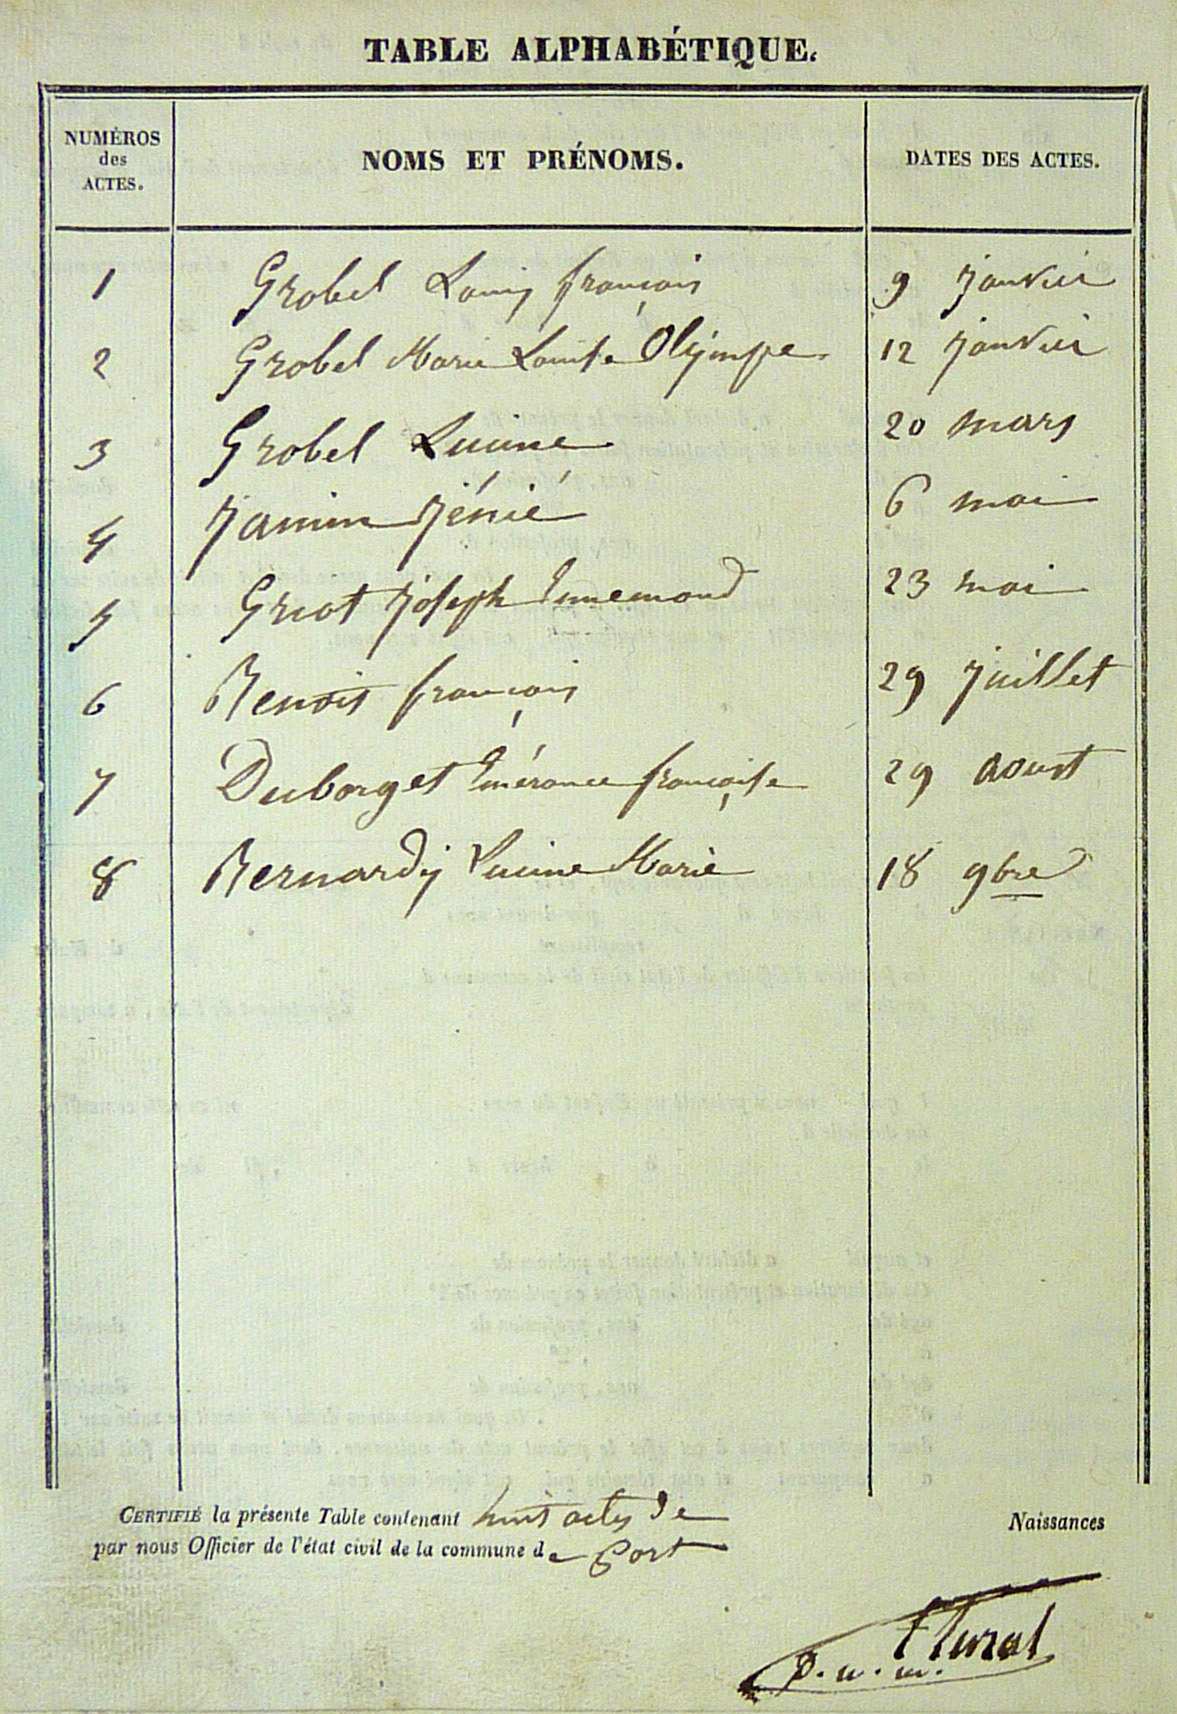 TABLE ALPHABÉTIQUE.
NUMÉROS
des
ACTES.
NOMS ET PRÉNOMS.
DATES DES ACTES.
1 Grobel Louis françois 9 janvier
2 Grobel Marie Louise Olijmpe 12 janvier
3 Grobel 20 mars
4 Jamin Jénié 6 mai
5 Griot Joseph Ennemond 23 mai
6 Benoit françois 29 juillet
7 Duborget Emérance françoise 29 Aoust
8 Bernardij Marie 18 9bre
CERTIFIÉ la présente Table contenant huit actes de Naissances
par nous Officier de l'état civil de la commune de Port